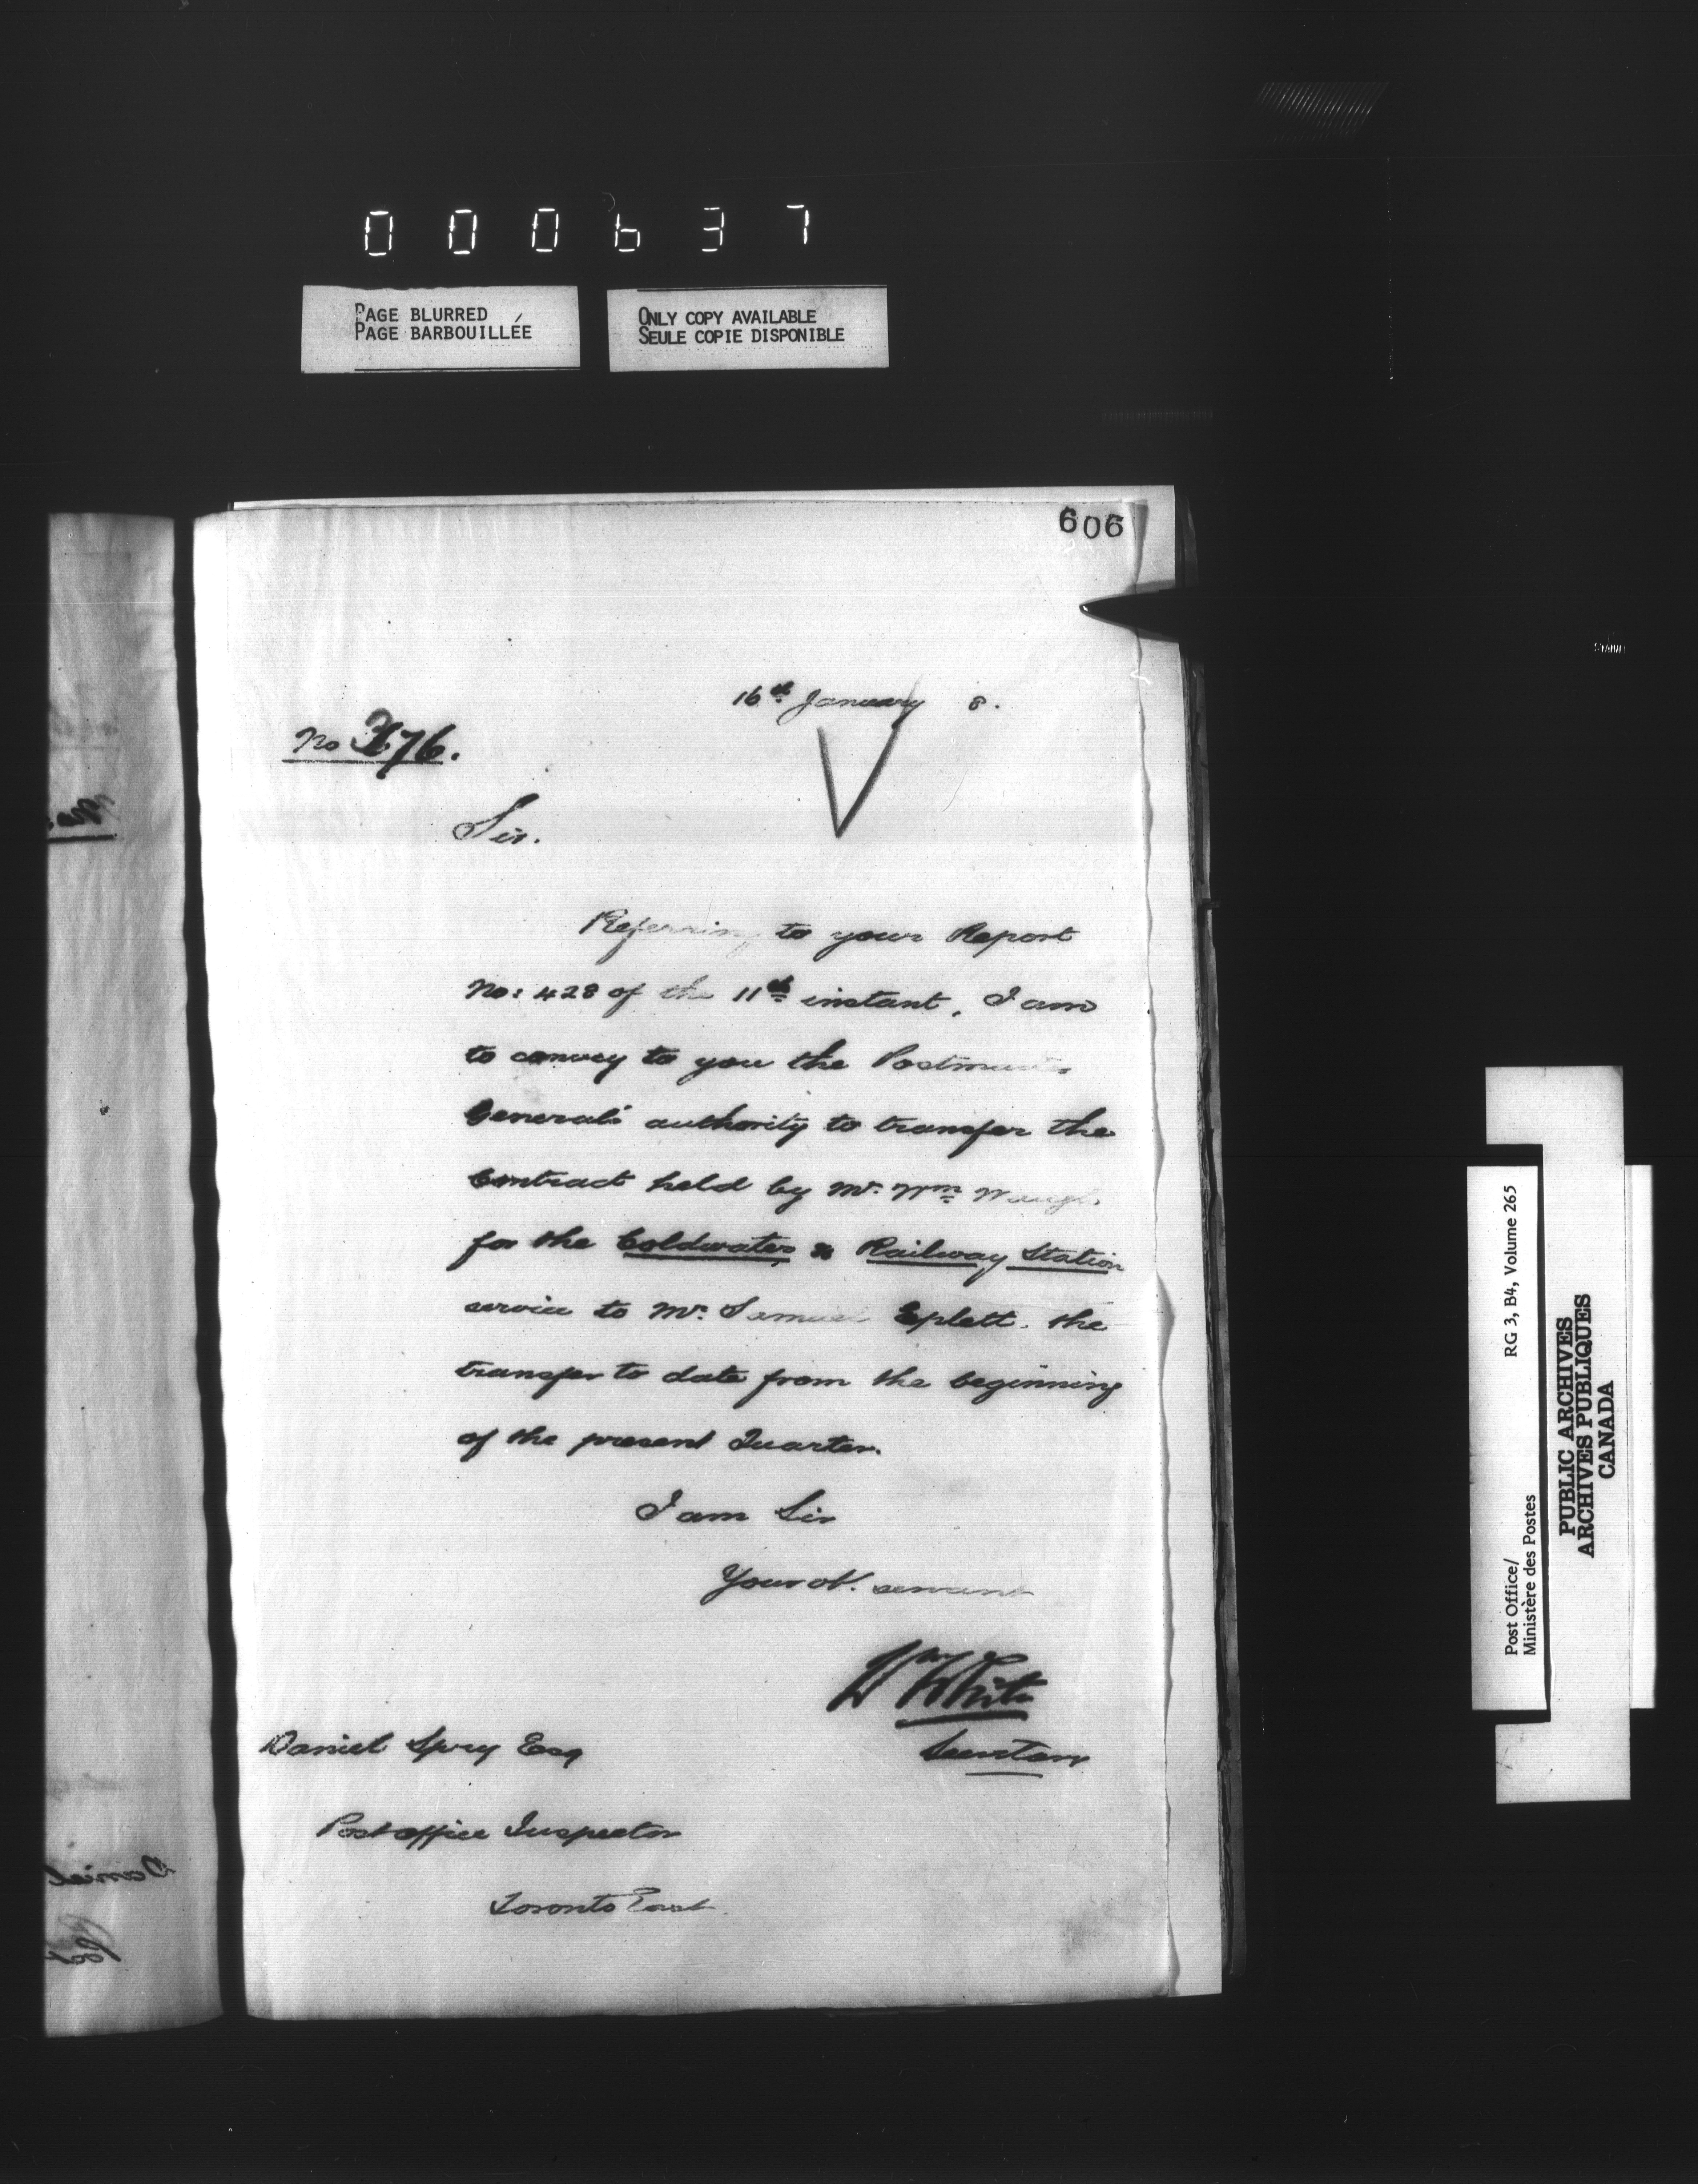 000637
PAGE BLURRED
PAGE BARBOUILLÉE
ONLY COPY AVAILABLE
SEULE COPIE DISPONIBLE
606
16th January 8.
No 376.
Sir.
Referring to your Report
No: 428 of the 11th instant, I am
to convey to you the Postmaster
General's authority to transfer the
Contract held by Mr. Wm Waugh
for the Coldwater & Railway Station
service to Mr. Samuel Eplett. the
transfer to date from the beginning
of the present Quarter.
I am Sir
Your ob. servant
Wm White
Secretary
Daniel Spry Esq
Post office Inspector
Toronto East
Post Office/
Ministère des Postes
RG 3, B4, Volume 265
PUBLIC ARCHIVES
ARCHIVES PUBLIQUES
CANADA